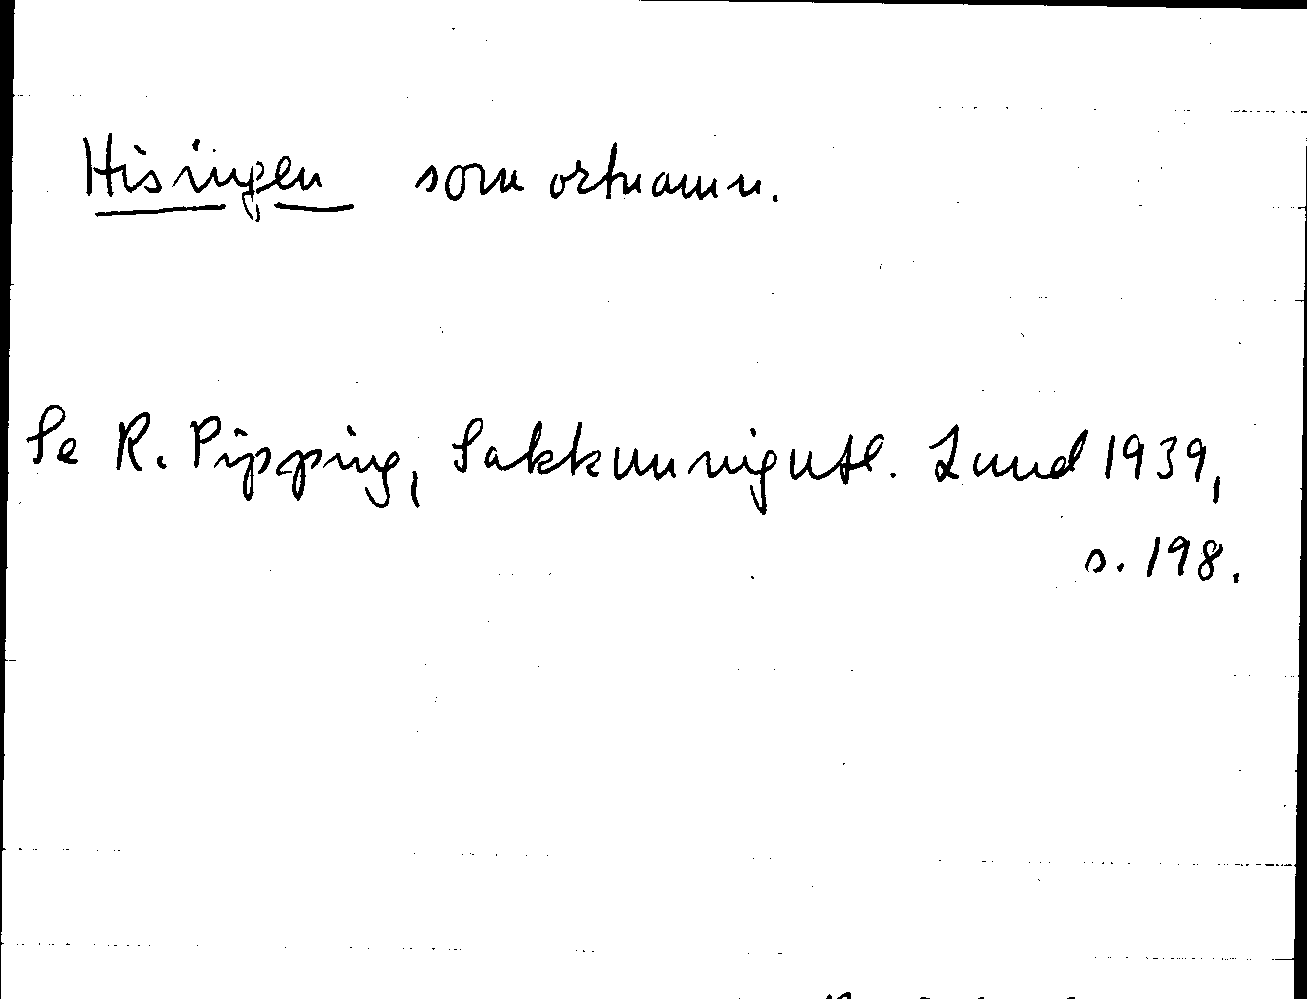 Hisingen som ortnamn.
Se R. Pipping, Sakkunnigutl. Lund 1939,
s. 198.